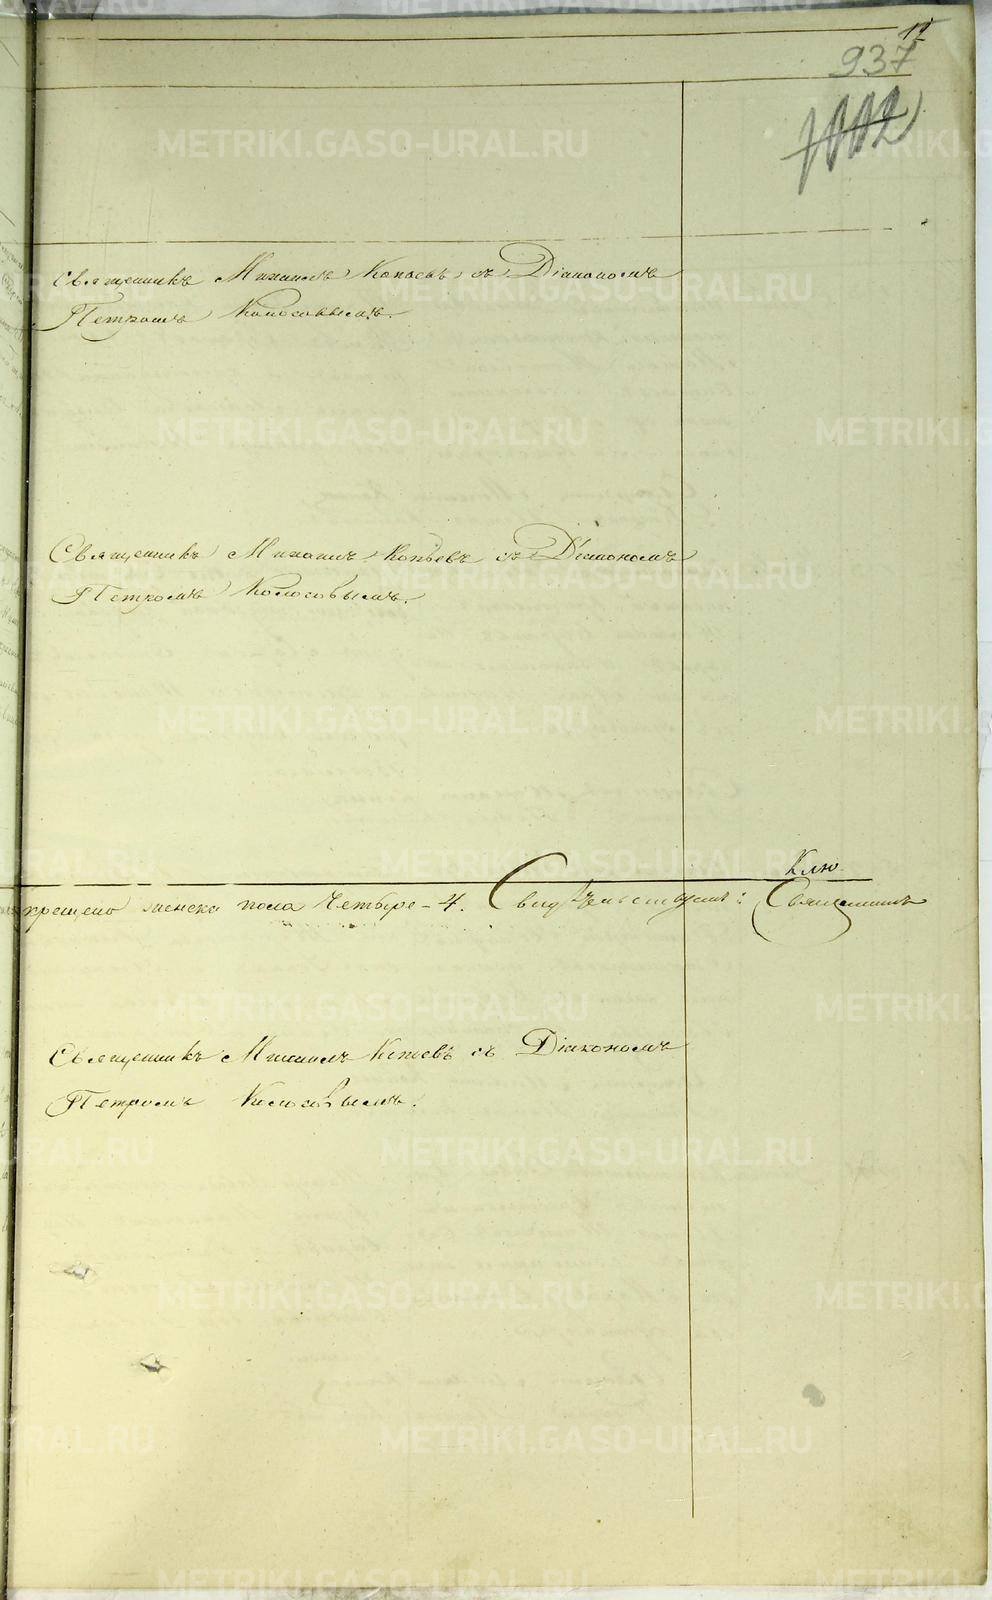 12
937
1002
Священникъ Михаилъ Копьевъ съ Діакономъ
Петромъ Колосовымъ.
Священникъ Михаилъ Копьевъ съ Діакономъ
Петромъ Колосовымъ.
Клю
крещено женска пола Четыре - 4. Свидѣтельствуемъ: Священникъ
Священникъ Михаилъ Копьевъ съ Діакономъ
Петромъ Колосовымъ.
METRIKI.GASO-URAL.RU